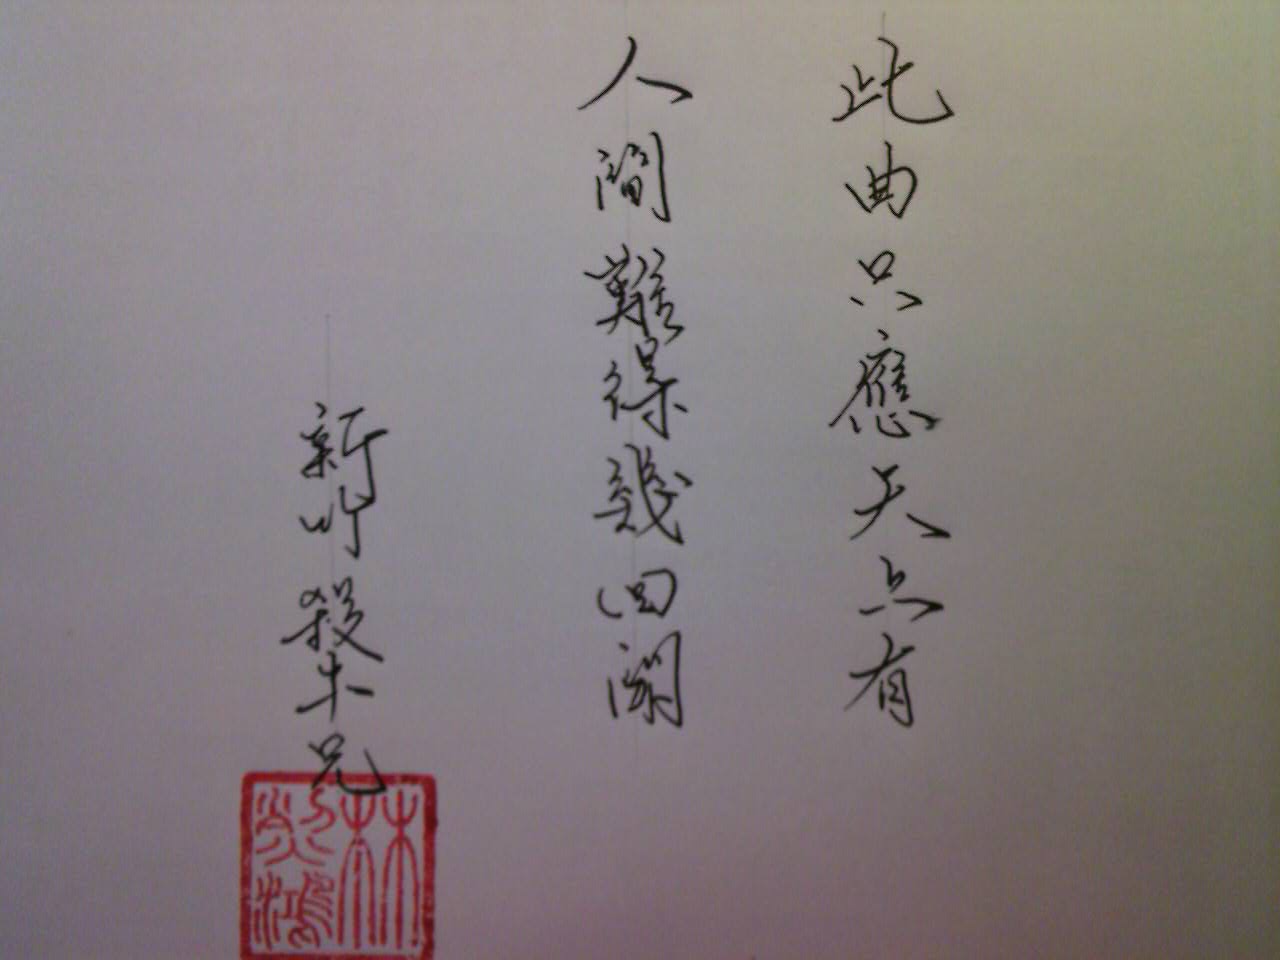 此曲只應天上有
人間難得幾回聞
新竹 殺牛兄
林